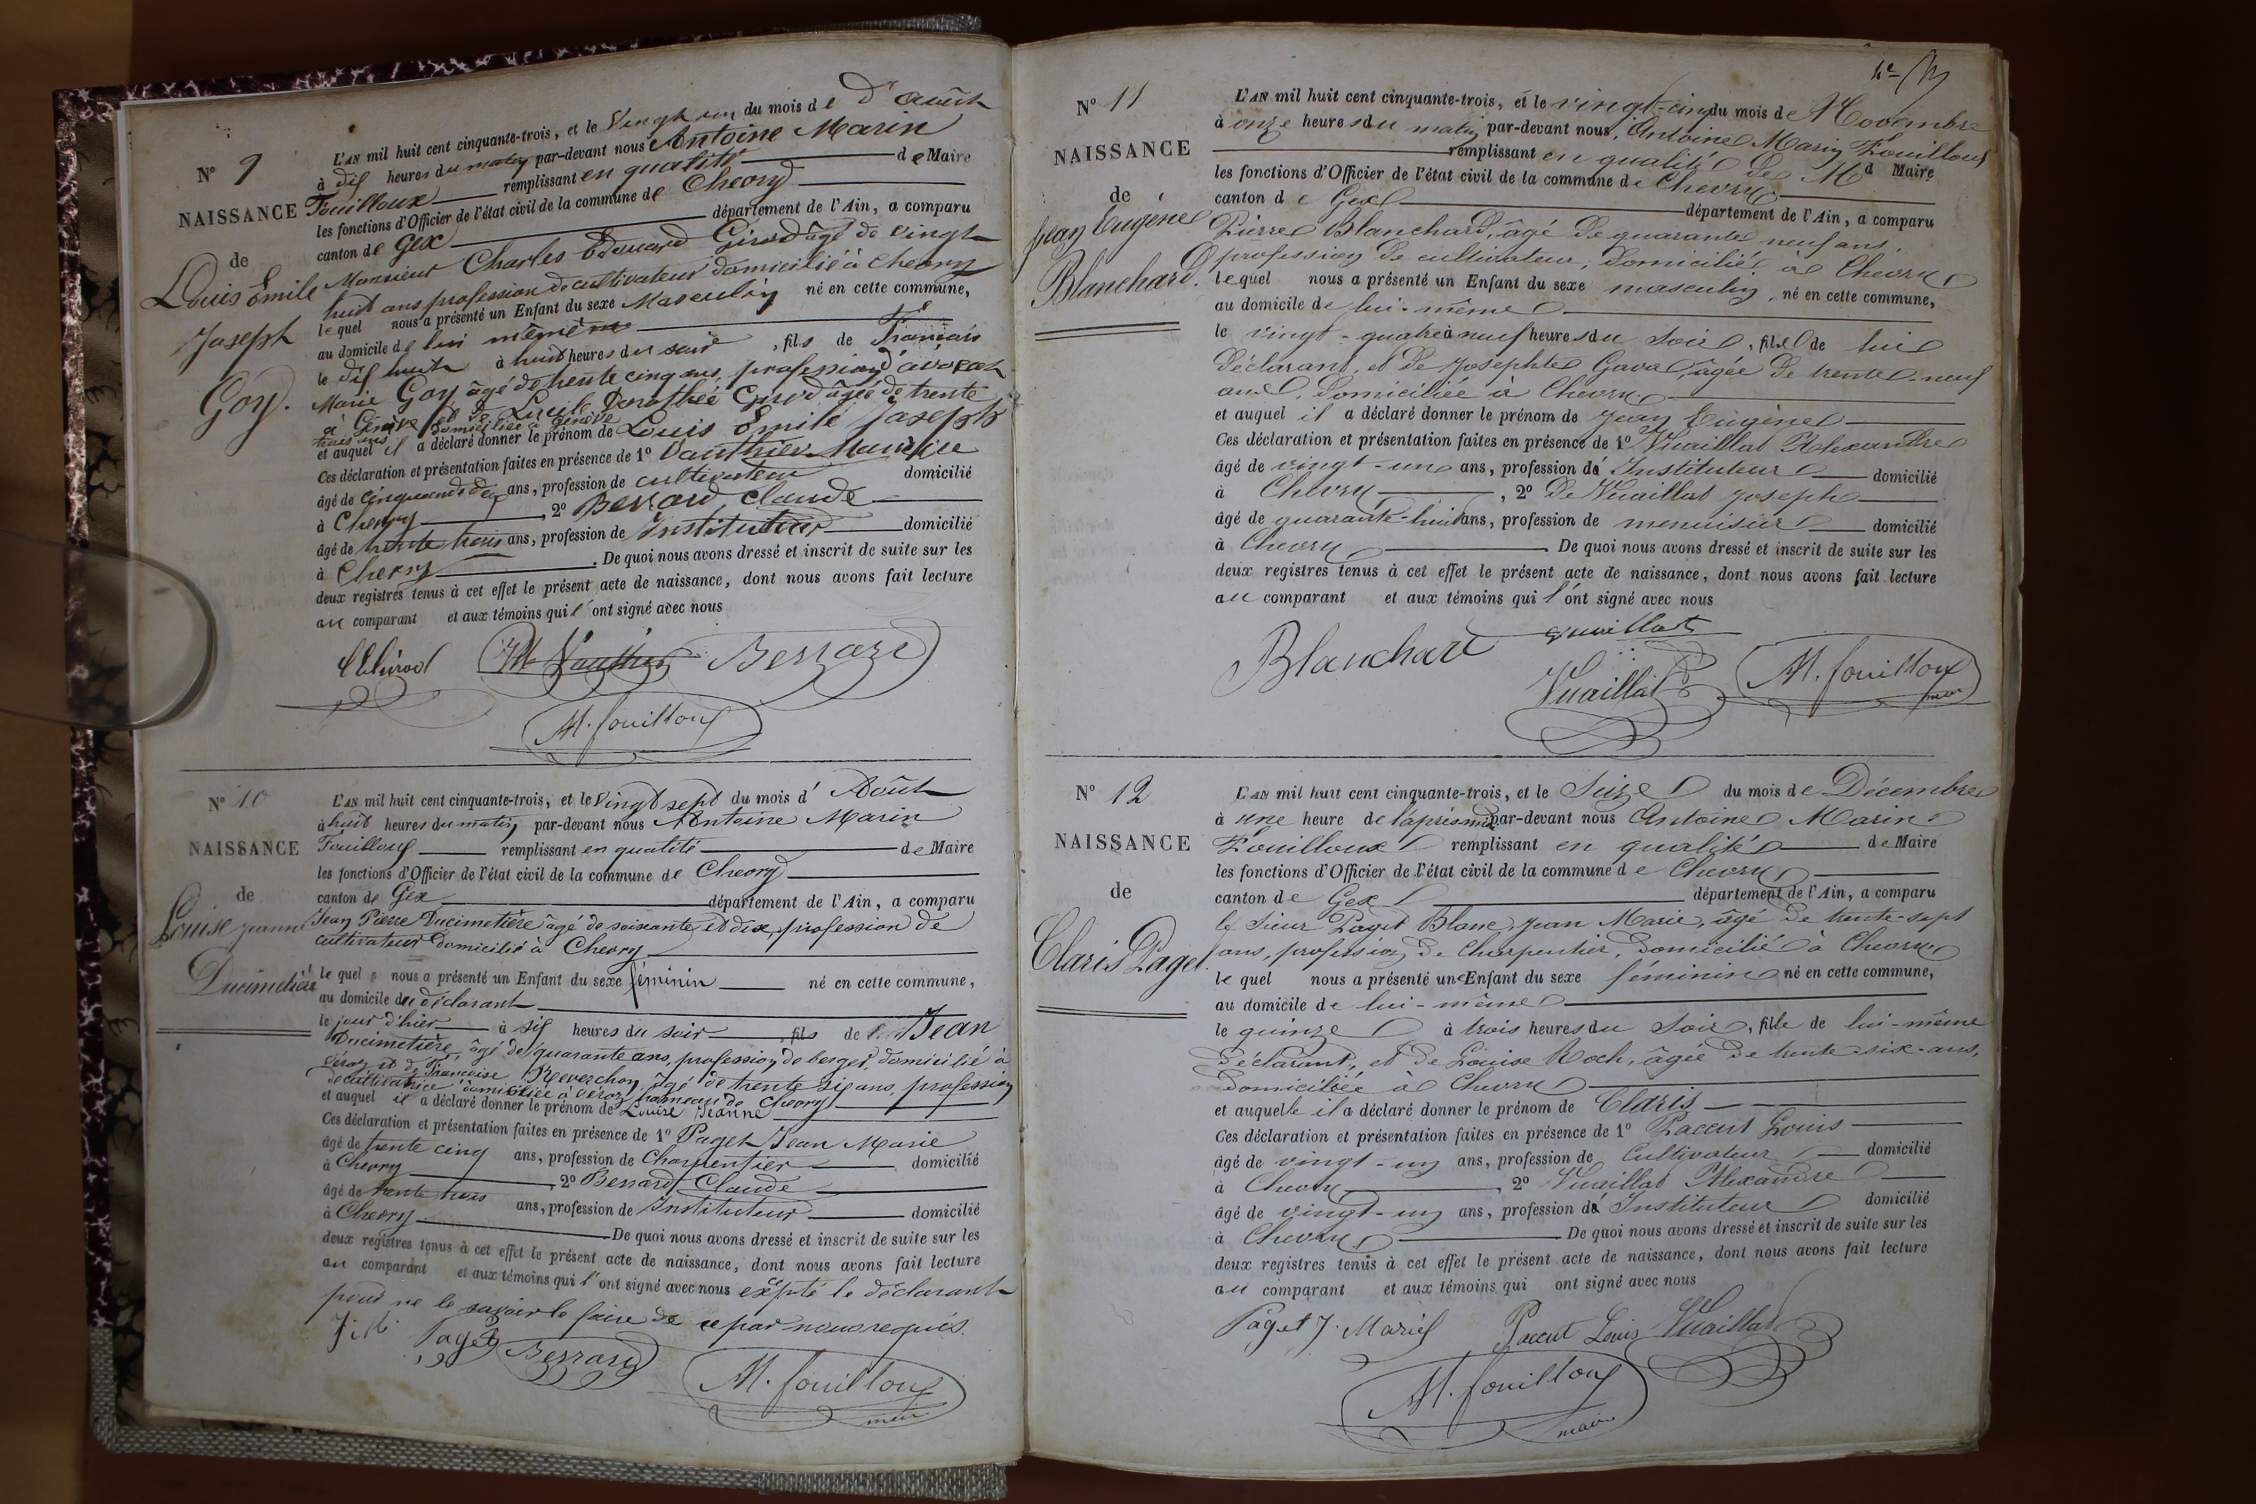 N° 9
NAISSANCE
de
Louis Emile
Joseph
Goy.
L'AN mil huit cent cinquante-trois, et le Vingt un du mois de d'août
à dix heures du matin par-devant nous Antoine Marin
Fouilloux remplissant en qualité de Maire
les fonctions d'Officier de l'état civil de la commune de Chevry
canton de Gex département de l'Ain, a comparu
Monsieur Charles Edouard Girod âgé de vingt
huit ans profession de cultivateur domicilié à Chevry
lequel nous a présenté un Enfant du sexe Masculin né en cette commune,
au domicile de lui même
le dix huit à huit heures du soir, fils de François
Marie Goy âgé de trente cinq ans, profession d'avocat
à Genève et de Lucile Dorothée Girod âgée de trente
trois ans domiciliée à Genève
et auquel il a déclaré donner le prénom de Louis Emile Joseph
Ces déclaration et présentation faites en présence de 1° Vauthier Maurice
âgé de cinquante deux ans, profession de cultivateur domicilié
à Chevry, 2° Berrard Claude
âgé de trente trois ans, profession de Instituteur domicilié
à Chevry. De quoi nous avons dressé et inscrit de suite sur les
deux registres tenus à cet effet le présent acte de naissance, dont nous avons fait lecture
au comparant et aux témoins qui l'ont signé avec nous
Girod Vauthier Berrard
M. fouilloux
N° 10
NAISSANCE
de
Louise Jeanne
Ducimetière
L'AN mil huit cent cinquante-trois, et le Vingt sept du mois d' Août
à huit heures du matin par-devant nous Antoine Marin
Fouilloux remplissant en qualité de Maire
les fonctions d'Officier de l'état civil de la commune de Chevry
canton de Gex département de l'Ain, a comparu
Jean Pierre Ducimetière âgé de soixante et dix, profession de
cultivateur domicilié à Chevry
le quel nous a présenté un Enfant du sexe féminin né en cette commune,
au domicile du déclarant
le jour d'hier à six heures du soir, fils de Jean
Ducimetière, âgé de quarante ans, profession de berger, domicilié à
Véraz et de Françoise Reverchon âgé de trente six ans, profession
de cultivatrice domiciliée à Véraz hameau de Chevry
et auquel il a déclaré donner le prénom de Louise Jeanne
Ces déclaration et présentation faites en présence de 1° Paget Jean Marie
âgé de trente cinq ans, profession de Charpentier domicilié
à Chevry, 2° Berrard Claude
âgé de trente trois ans, profession de Instituteur domicilié
à Chevry De quoi nous avons dressé et inscrit de suite sur les
deux registres tenus à cet effet le présent acte de naissance, dont nous avons fait lecture
au comparant et aux témoins qui l'ont signé avec nous excepté le déclarant
pour ne le savoir le faire de ce par nous requis.
J. M. Paget Berrard
M. fouilloux
maire
N° 11
NAISSANCE
de
Jean Eugène
Blanchard.
L'AN mil huit cent cinquante-trois, et le vingt-cinq du mois de Novembre
à onze heures du matin par-devant nous, Antoine Marin Fouilloux
remplissant en qualité de Md Maire
les fonctions d'Officier de l'état civil de la commune de Chevry
canton de Gex département de l'Ain, a comparu
Pierre Blanchard, âgé de quarante neuf ans,
profession de cultivateur, domicilié à Chevry
lequel nous a présenté un Enfant du sexe masculin, né en cette commune,
au domicile de lui-même
le vingt-quatre à neuf heures du soir, fils de lui
déclarant, et de Josephte Gaval, âgée de trente-neuf
ans, domiciliée à Chevry
et auquel il a déclaré donner le prénom de Jean Eugène
Ces déclaration et présentation faites en présence de 1° Vuaillat Alexandre
âgé de vingt-un ans, profession d'Instituteur domicilié
à Chevry, 2° De Vuaillat Joseph
âgé de quarante-huit ans, profession de menuisier domicilié
à Chevry. De quoi nous avons dressé et inscrit de suite sur les
deux registres tenus à cet effet le présent acte de naissance, dont nous avons fait lecture
au comparant et aux témoins qui l'ont signé avec nous
Blanchard Vuaillat
Vuaillat M. fouilloux
maire
N° 12
NAISSANCE
de
Claris Paget.
L'AN mil huit cent cinquante-trois, et le Seize du mois de Décembre
à une heure de l'après midi par-devant nous Antoine Marin
Fouilloux remplissant en qualité de Maire
les fonctions d'Officier de l'état civil de la commune de Chevry
canton de Gex département de l'Ain, a comparu
le Sieur Paget Blanc, Jean Marie, âgé de trente-sept
ans, profession de charpentier, domicilié à Chevry
le quel nous a présenté une Enfant du sexe féminin né en cette commune,
au domicile de lui-même
le quinze à trois heures du soir, fille de lui-même
déclarant, et de Louise Roch, âgée de trente-six-ans,
domiciliée à Chevry
et auquelle il a déclaré donner le prénom de Claris
Ces déclaration et présentation faites en présence de 1° Paccut Louis
âgé de vingt-un ans, profession de Cultivateur domicilié
à Chevry, 2° Vuaillat Alexandre
âgé de vingt-un ans, profession d'Instituteur domicilié
à Chevry De quoi nous avons dressé et inscrit de suite sur les
deux registres tenus à cet effet le présent acte de naissance, dont nous avons fait lecture
au comparant et aux témoins qui ont signé avec nous
Paget J. Marie Paccut Louis Vuaillat
M. fouilloux
maire